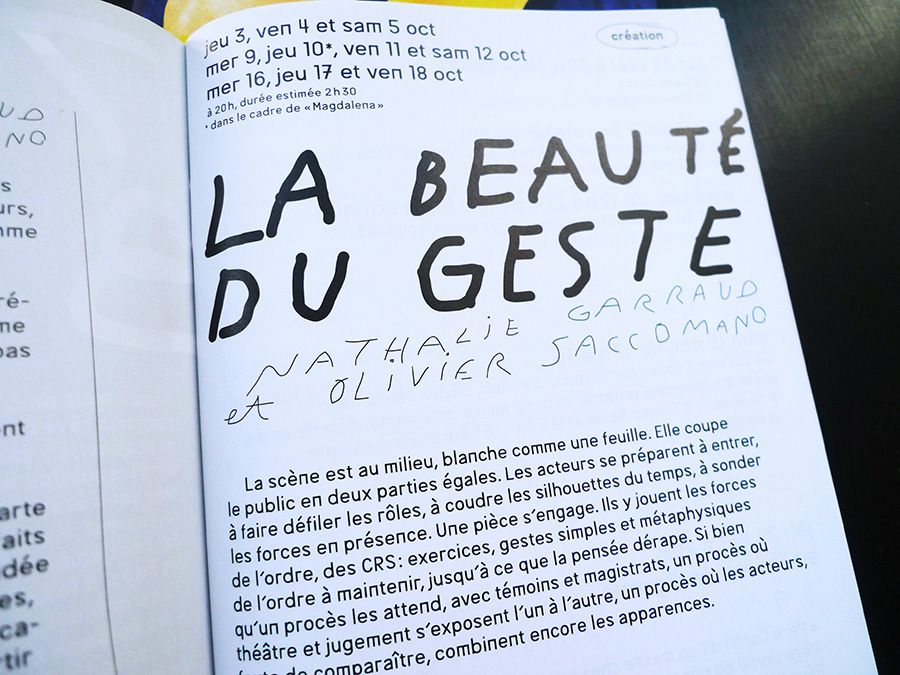 jeu 3, ven 4 et sam 5 oct
mer 9, jeu 10*, ven 11 et sam 12 oct
mer 16, jeu 17 et ven 18 oct
à 20h, durée estimée 2h30
* dans le cadre de «Magdalena»
création
LA BEAUTÉ
DU GESTE
NATHALIE GARRAUD
et OLIVIER SACCOMANO
La scène est au milieu, blanche comme une feuille. Elle coupe
le public en deux parties égales. Les acteurs se préparent à entrer,
à faire défiler les rôles, à coudre les silhouettes du temps, à sonder
les forces en présence. Une pièce s'engage. Ils y jouent les forces
de l'ordre, des CRS : exercices, gestes simples et métaphysiques
de l'ordre à maintenir, jusqu'à ce que la pensée dérape. Si bien
qu'un procès les attend, avec témoins et magistrats, un procès où
théâtre et jugement s'exposent l'un à l'autre, un procès où les acteurs,
de comparaître, combinent encore les apparences.